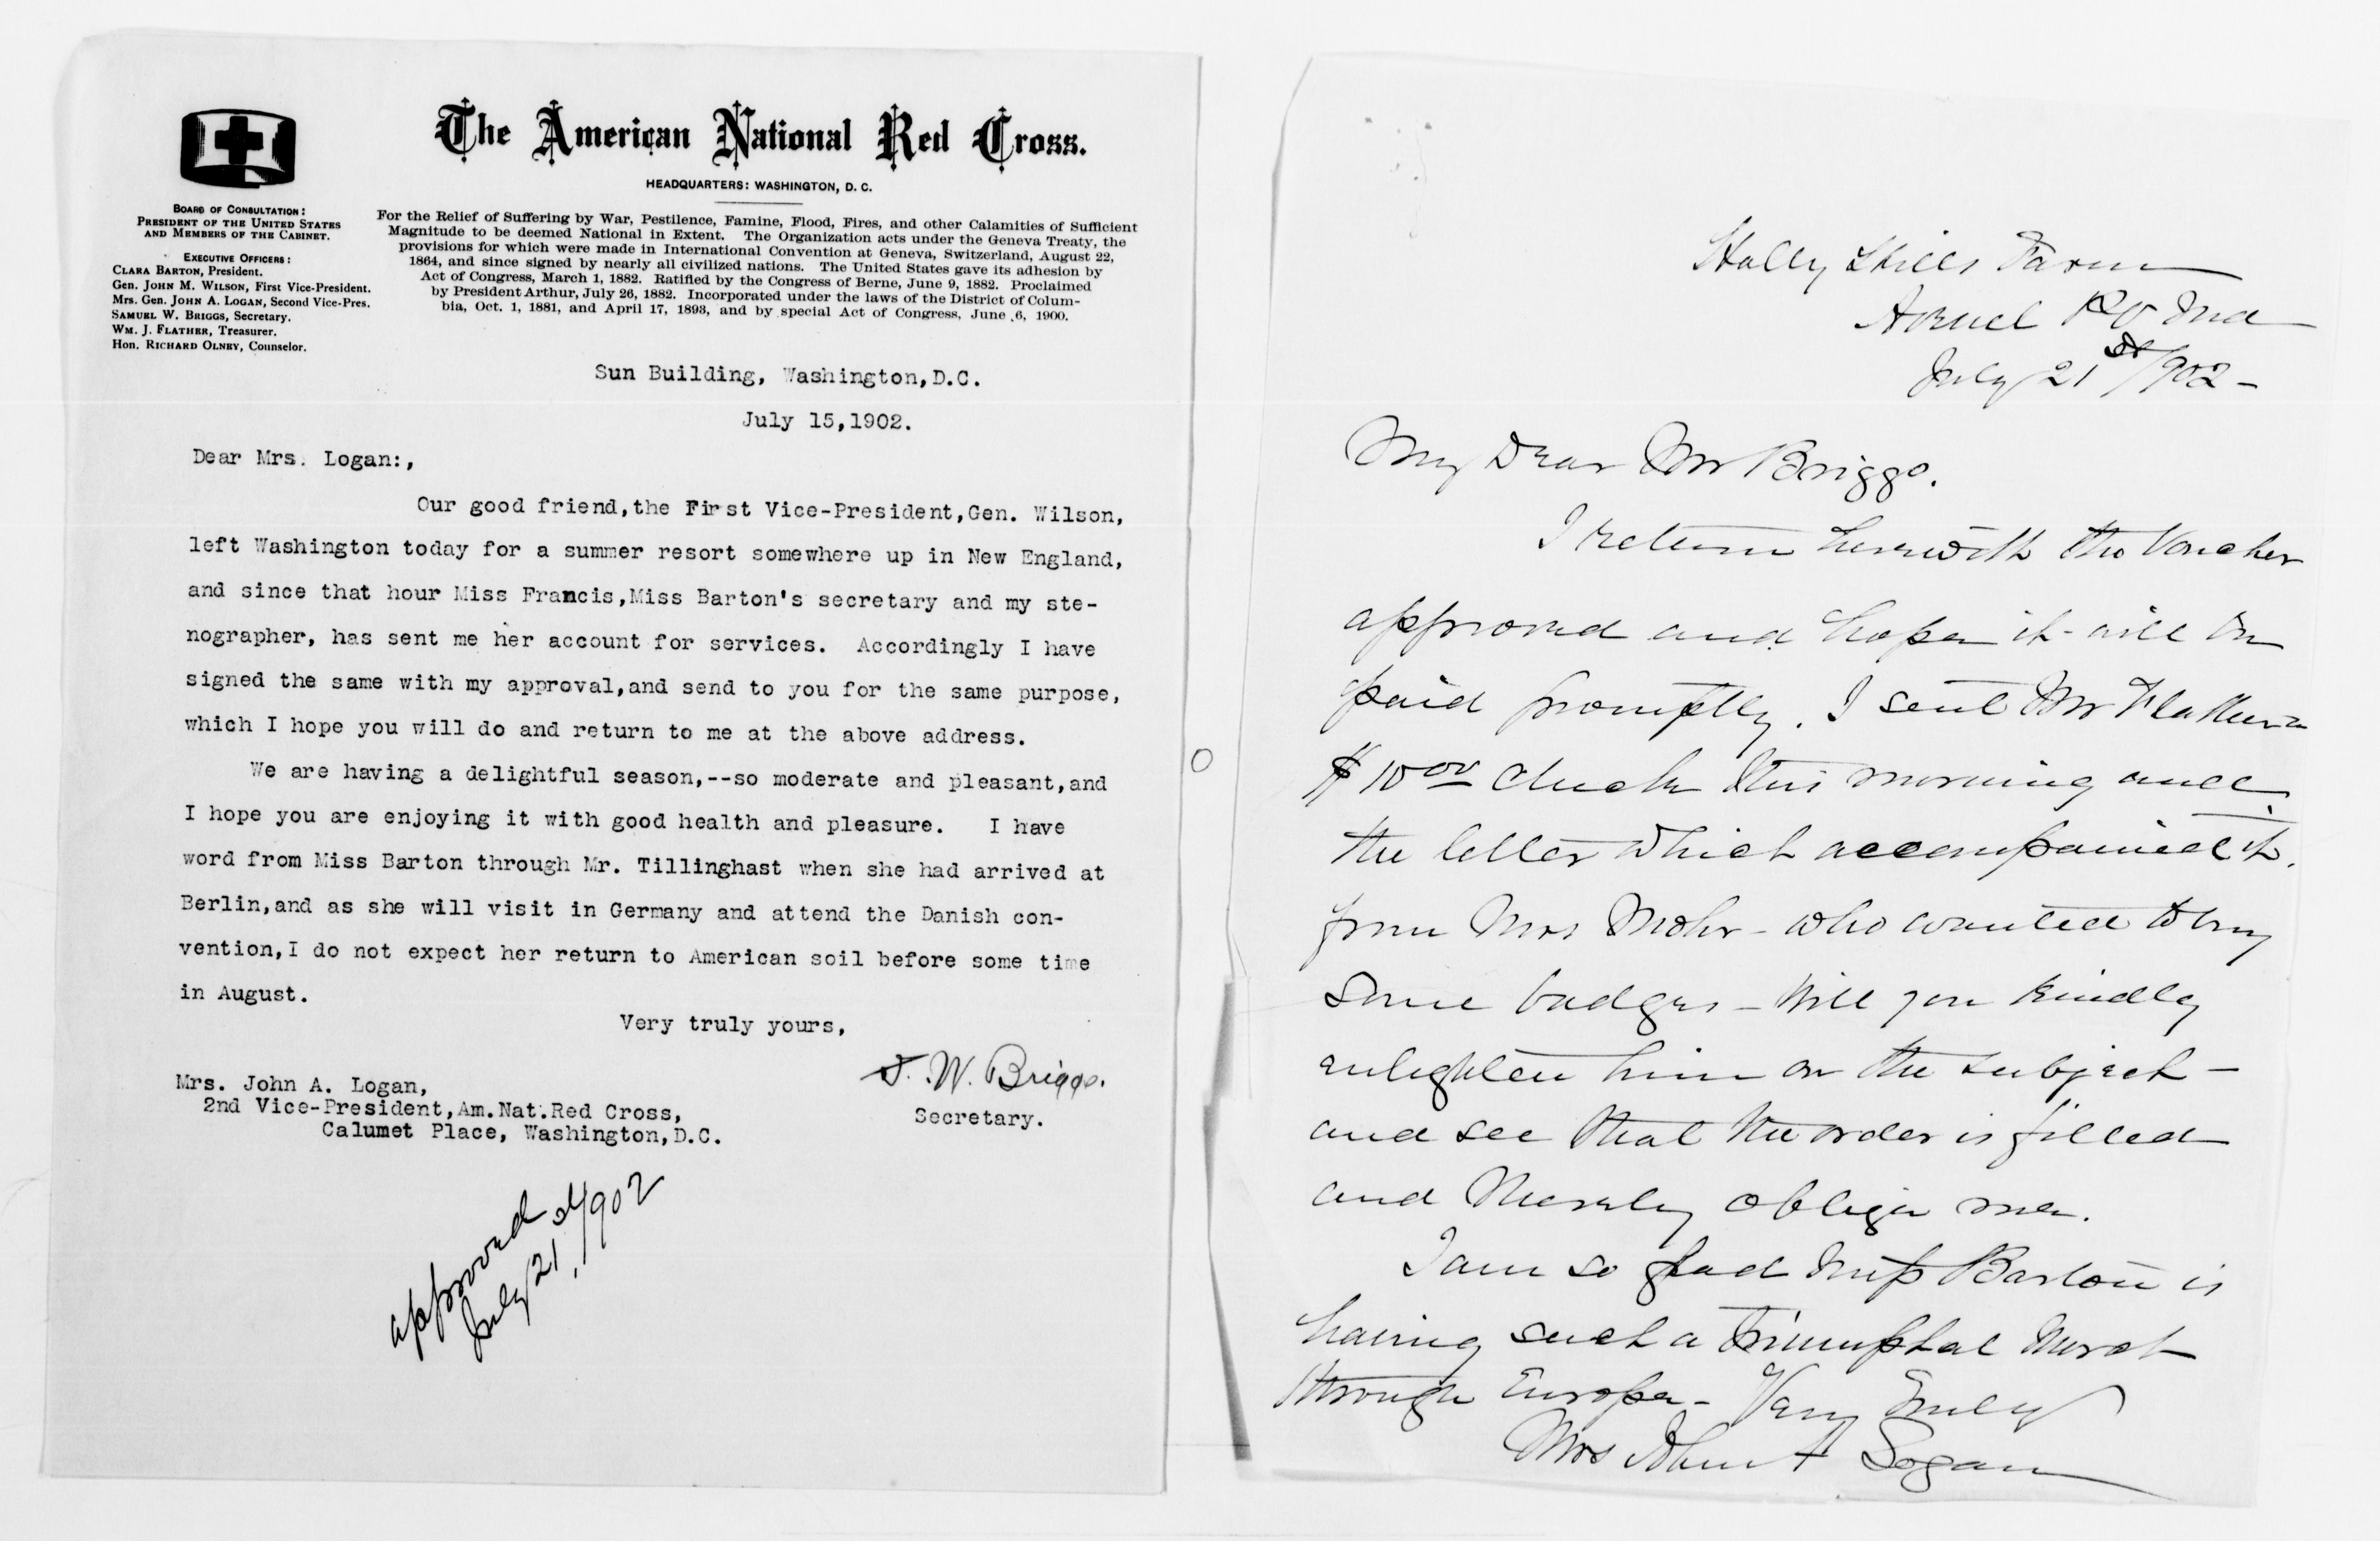 The American National Red Cross.
HEADQUARTERS: WASHINGTON, D. C.
BOARD OF CONSULTATION:
PRESIDENT OF THE UNITED STATES
AND MEMBERS OF THE CABINET.
EXECUTIVE OFFICERS:
CLARA BARTON, President.
Gen. JOHN M. WILSON, First Vice-President.
Mrs. Gen. JOHN A. LOGAN, Second Vice-Pres.
SAMUEL W. BRIGGS, Secretary.
WM. J. FLATHER, Treasurer.
Hon. RICHARD OLNEY, Counselor.
For the Relief of Suffering by War, Pestilence, Famine, Flood, Fires, and other Calamities of Sufficient
Magnitude to be deemed National in Extent. The Organization acts under the Geneva Treaty, the
provisions for which were made in International Convention at Geneva, Switzerland, August 22,
1864, and since signed by nearly all civilized nations. The United States gave its adhesion by
Act of Congress, March 1, 1882. Ratified by the Congress of Berne, June 9, 1882. Proclaimed
by President Arthur, July 26, 1882. Incorporated under the laws of the District of Colum-
bia, Oct. 1, 1881, and April 17, 1893, and by special Act of Congress, June 6, 1900.
Sun Building, Washington,D.C.
July 15,1902.
Dear Mrs. Logan:,
Our good friend,the First Vice-President,Gen. Wilson,
left Washington today for a summer resort somewhere up in New England,
and since that hour Miss Francis,Miss Barton's secretary and my ste-
nographer, has sent me her account for services. Accordingly I have
signed the same with my approval,and send to you for the same purpose,
which I hope you will do and return to me at the above address.
We are having a delightful season,--so moderate and pleasant,and
I hope you are enjoying it with good health and pleasure. I have
word from Miss Barton through Mr. Tillinghast when she had arrived at
Berlin,and as she will visit in Germany and attend the Danish con-
vention,I do not expect her return to American soil before some time
in August.
Very truly yours,
S. W. Briggs.
Secretary.
Mrs. John A. Logan,
2nd Vice-President,Am.Nat.Red Cross,
Calumet Place, Washington,D.C.
approved
July 21st, 1902
Holly Hills Farm
Md
July 21st 1902 -
My Dear Mr Briggs.
I return herewith the Voucher
approved and hope it will be
paid promptly. I sent Mr Flather a
$10 00 check this morning and
the letter which accompanied it.
from Mrs Mohr - who wanted to buy
some badges - Will you kindly
enlighten him on the subject -
and see that the order is filled
and thereby oblige me.
I am so glad Miss Barton is
having such a triumphal March
through Europe - Very Truly
Mrs John A Logan